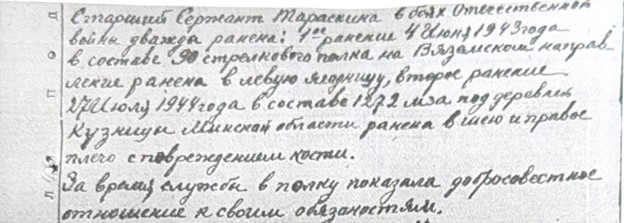 Старший Сержант Тараскина в боях Отечественной
войны дважды ранена: 1ое ранение 4 Июня 1943 года
в составе 90 стрелкового полка на Вяземском направ
лении ранена в левую ягодицу, второе ранение
27 Июля 1944 года в составе 1272 мза под деревней
Кузницы Минской области ранена в шею и правое
плечо с повреждением кости.
За время службы в полку показала добросовестное
отношение к своим обязаностям.